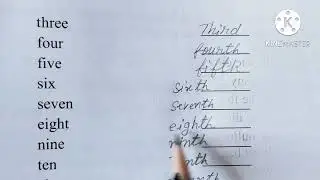 three Third
four fourth
five fifth
six sixth
seven seventh
eight eighth
nine ninth
ten
KINEMASTER